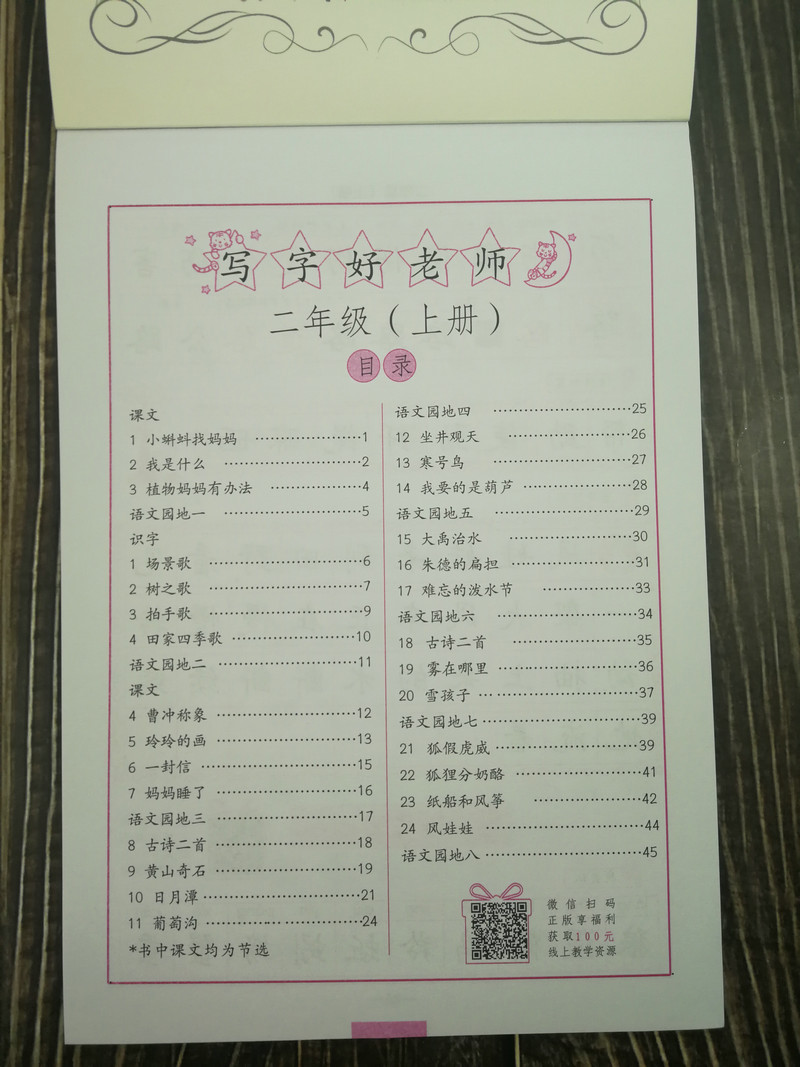 写字好老师
二年级（上册）
目录
课文
1 小蝌蚪找妈妈 …………………1
2 我是什么 ………………………2
3 植物妈妈有办法 ………………4
语文园地一 ………………………5
识字
1 场景歌 …………………………6
2 树之歌 …………………………7
3 拍手歌 …………………………9
4 田家四季歌 ……………………10
语文园地二 ………………………11
课文
4 曹冲称象 ………………………12
5 玲玲的画 ………………………13
6 一封信 …………………………15
7 妈妈睡了 ………………………16
语文园地三 ………………………17
8 古诗二首 ………………………18
9 黄山奇石 ………………………19
10 日月潭 …………………………21
11 葡萄沟 …………………………24
*书中课文均为节选
语文园地四 ………………………25
12 坐井观天 ……………………26
13 寒号鸟 ………………………27
14 我要的是葫芦 …………………28
语文园地五 ………………………29
15 大禹治水 ……………………30
16 朱德的扁担 …………………31
17 难忘的泼水节 ………………33
语文园地六 ………………………34
18 古诗二首 ……………………35
19 雾在哪里 ………………………36
20 雪孩子 …………………………37
语文园地七 ………………………39
21 狐假虎威 ………………………39
22 狐狸分奶酪 ……………………41
23 纸船和风筝 …………………42
24 风娃娃 …………………………44
语文园地八 ………………………45
微信扫码
正版享福利
获取100元
线上教学资源